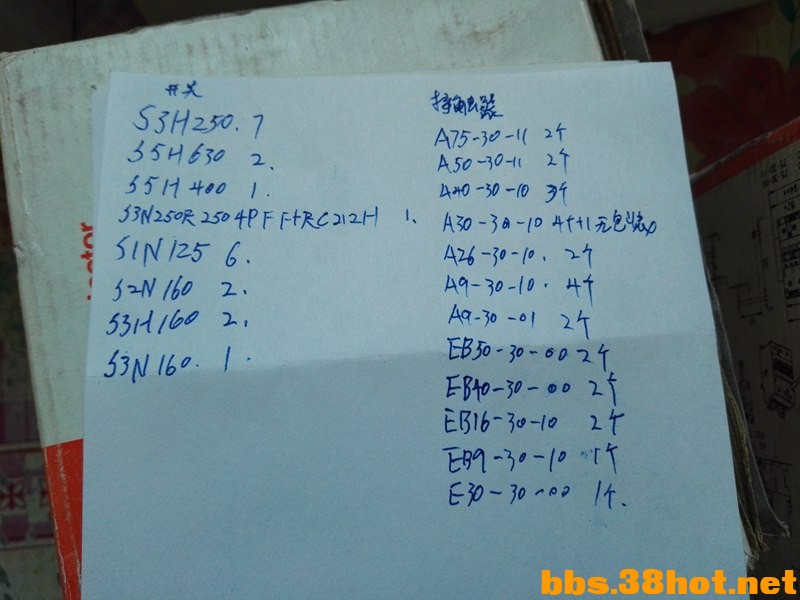 开关
S3H250. 7
S5H630 2.
S5H400 1.
S3N250R2504PFF+RC212H 1.
S1N125 6.
S2N160 2.
S3H160 2.
S3N160. 1.
接触器
A75-30-11 2个
A50-30-11 2个
A40-30-10 3个
A30-30-10 4个+1无包装
A26-30-10. 2个
A9-30-10. 4个
A9-30-01 2个
EB50-30-00 2个
EB40-30-00 2个
EB16-30-10 2个
EB9-30-10 1个
E30-30-00 1个.
ctor
bbs.38hot.net